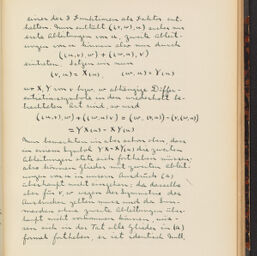 einer der 3 Funktionen als Faktor ent-
halten. Nun enthält ((v,w),u) sicher nur
erste Ableitungen von u, zweite Ableit-
ungen von u können also nur durch
((u,v),w) + ((w,u),v)
eintreten. Setzen wir nun
(v,u) = X(u), (w,u) = Y(u)
wo X, Y von v bzw. w abhängige Diffe-
rentiationssymbole in dem wiederholt be-
trachteten Art sind, so wird
((u,v),w) + ((w,u),v) = (w,(v,u)) - (v,(w,u))
= YX(u) - XY(u)
Nun bemerkten wir aber schon oben, dass
in einem Symbol YX - XY(u) die zweiten
Ableitungen stets sich fortheben müssen,
also können Glieder mit zweiten Ableit-
ungen von u in unserem Ausdruck (A)
überhaupt nicht eingehen; da dasselbe
aber für v, w wegen der Symmetrie des
Ausdrucks gelten muss und die Sum-
manden ohne zweite Ableitungen über-
haupt nicht vorkommen können, müs-
sen sich in der Tat alle Glieder in (A)
formal fortheben, er ist identisch Null.